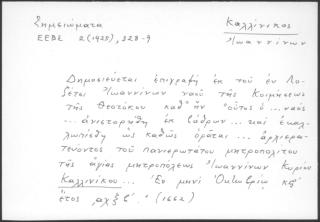 Σημειώματα
Καλλίνικος
ΕΕΒΣ 2 (1925), 328-9
Ἰωαννίνων
Δημοσιεύεται ἐπιγραφὴ ἐκ τοῦ ἐν
Ἰωαννίνων ναοῦ τῆς Κοιμήσεως
τῆς Θεοτόκου καθ' ἣν "οὗτος ὁ ... ναὸς
... ἀνιστορήθη ἐκ βάθρων ... καὶ ἐκαλ-
λωπίσθη ὡς καθὼς ὁρᾶται ... ἀρχιερα-
τεύοντος τοῦ πανιερωτάτου μητροπολίτου
τῆς ἁγίας μητροπόλεως Ἰωαννίνων Κυρίου
Καλλινίκου ... Ἐν μηνὶ Ὀκτωβρίῳ κϛ'
ἔτος ,αχξβ'." (1662)